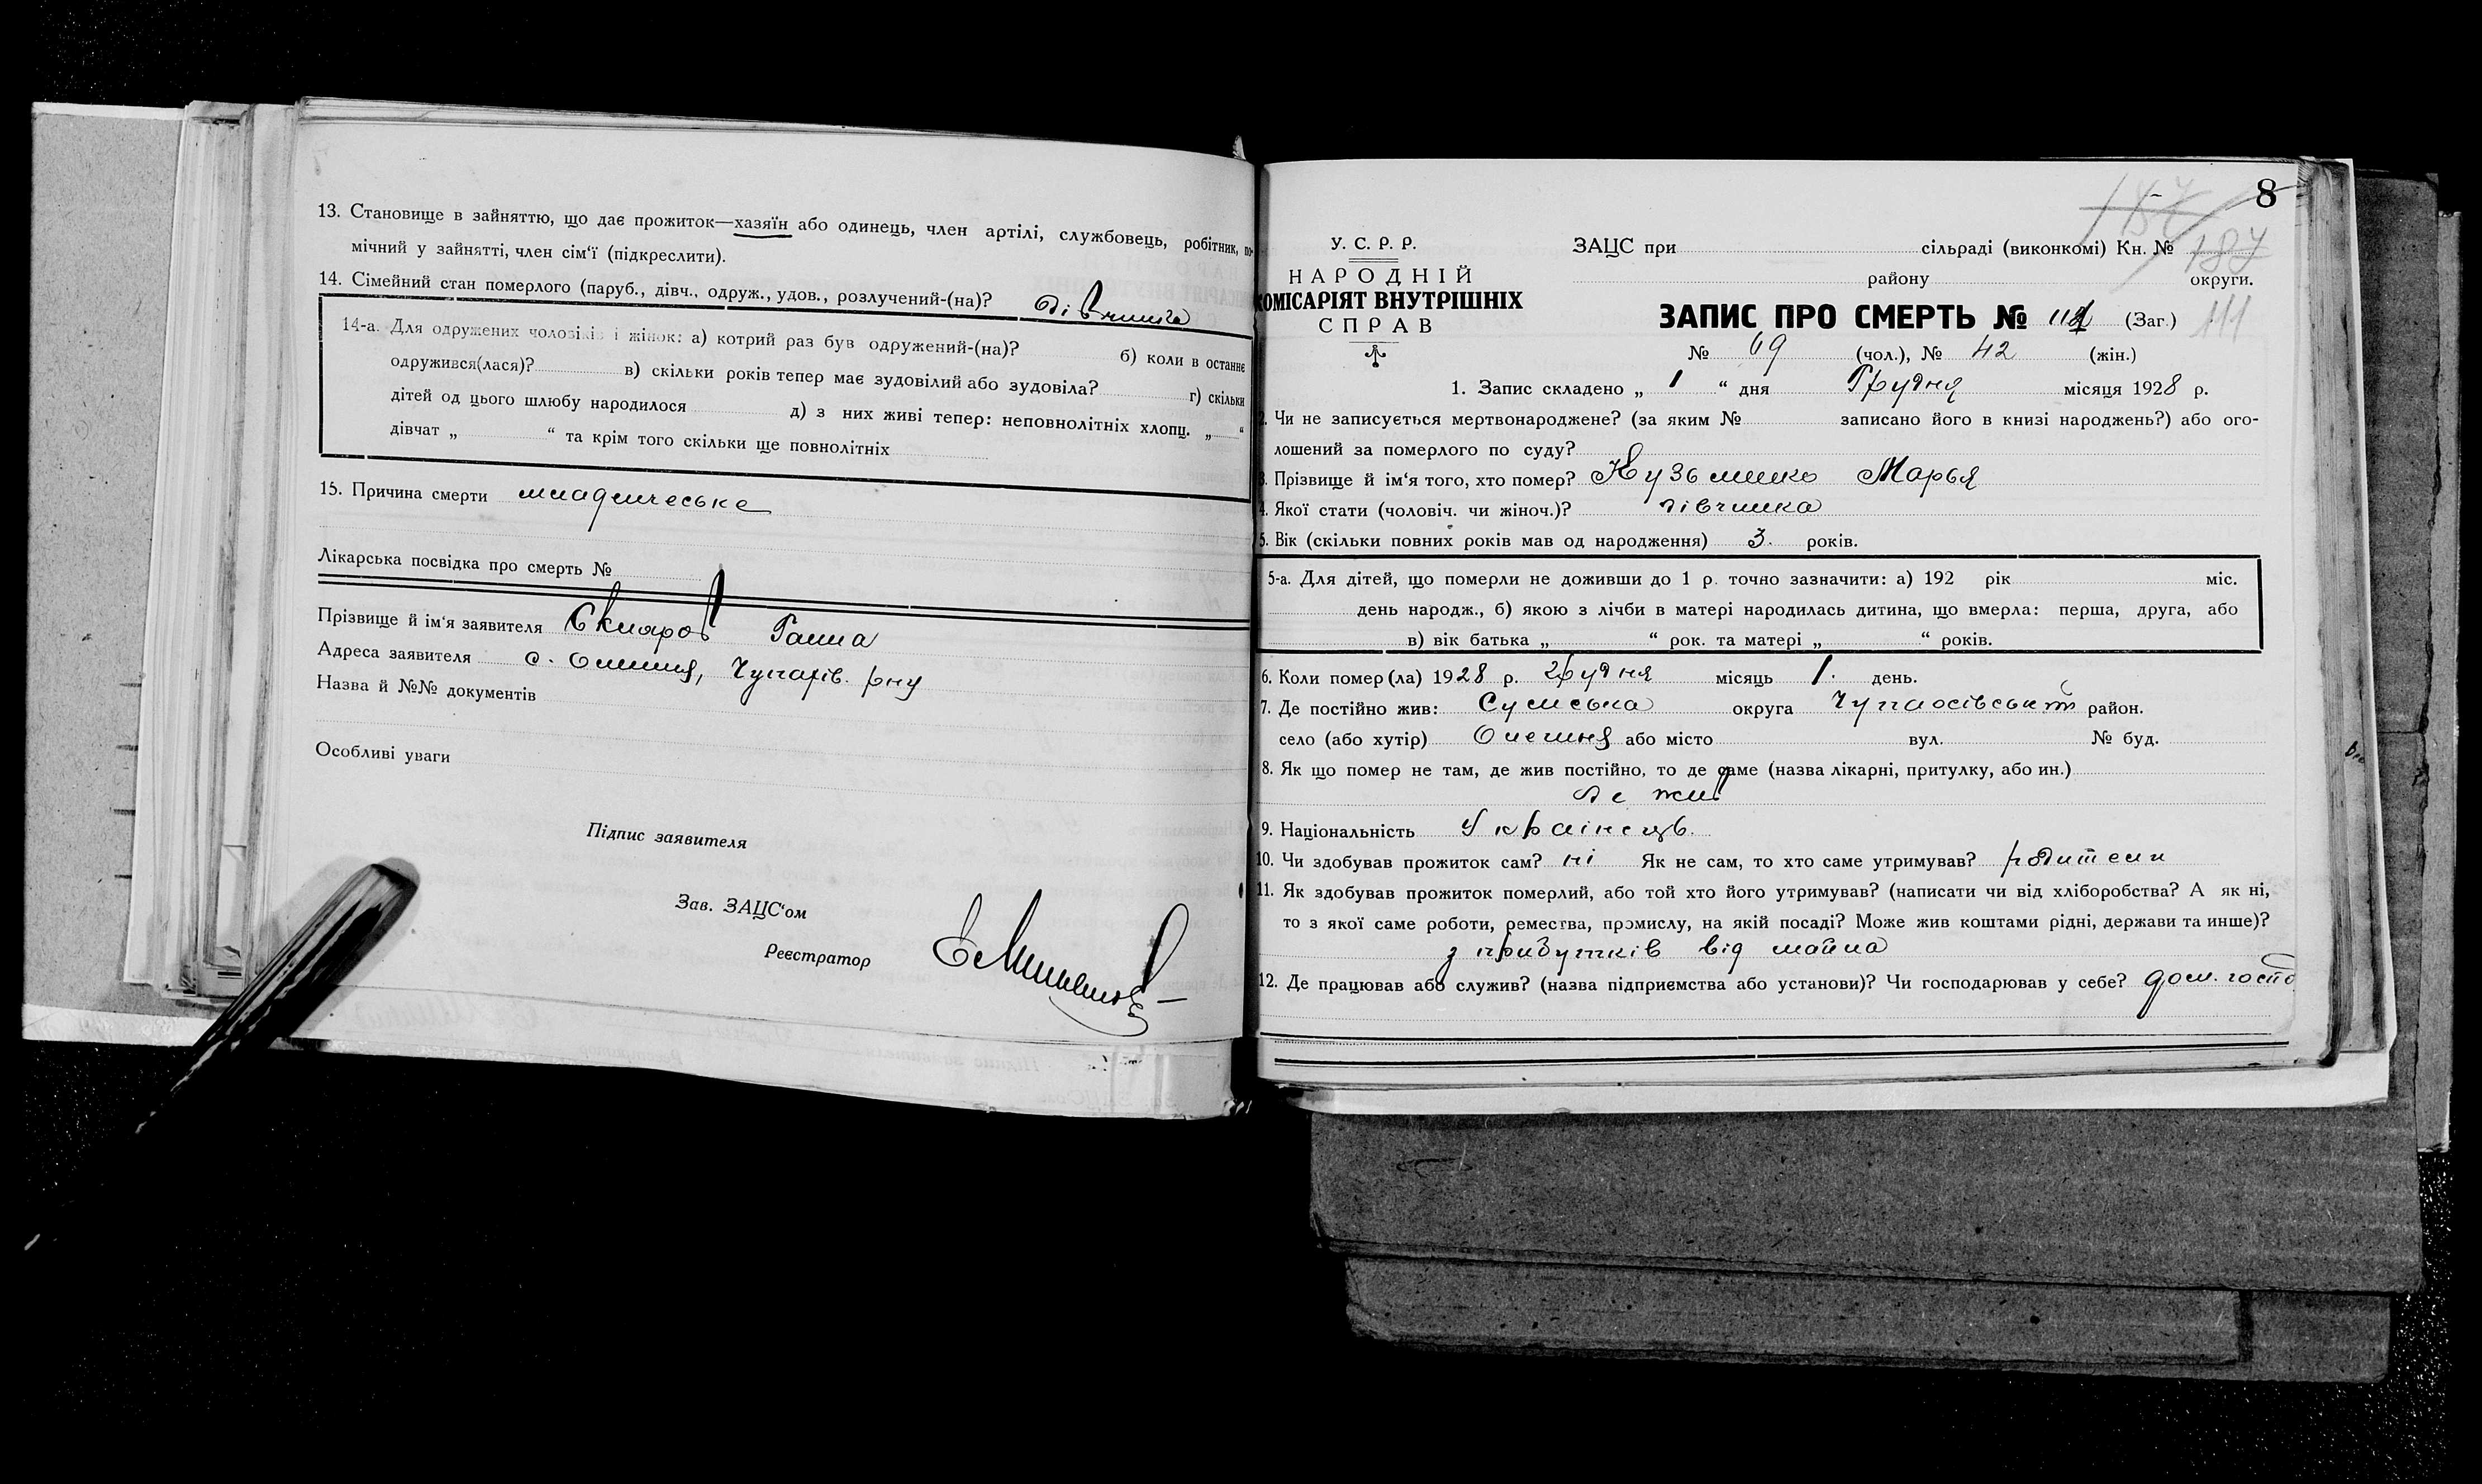 13. Становище в зайняттю, що дає прожиток—хазяїн або одинець, член артілі, службовець, робітник, по-
мічний у зайнятті, член сім'ї (підкреслити).
14. Сімейний стан померлого (паруб., дівч., одруж., удов., розлучений-(на)? дівчинка
14-а. Для одружених чоловіків і жінок: а) котрий раз був одружений-(на)? б) коли в останнє
одружився(лася)? в) скільки років тепер має зудовілий або зудовіла? г) скільки
дітей од цього шлюбу народилося д) з них живі тепер: неповнолітніх хлопц. „ “
дівчат „ “ та крім того скільки ще повнолітніх
15. Причина смерти младенческа
Лікарська посвідка про смерть №
Прізвище й ім'я заявителя Ганна
Адреса заявителя с. Олешня, Чупахів. р-ну
Назва й №№ документів
Особливі уваги
Підпис заявителя
Зав. ЗАЦС'ом
Реєстратор
8
187
187
111
У. С. Р. Р.
НАРОДНІЙ
КОМІСАРІЯТ ВНУТРІШНІХ
СПРАВ
ЗАЦС при сільраді (виконкомі) Кн. №
району округи.
ЗАПИС ПРО СМЕРТЬ № 111 (Заг.)
№ 69 (чол.), № 42 (жін.)
1. Запис складено „ 1 “ дня Грудня місяця 1928 р.
2. Чи не записується мертвонароджене? (за яким № записано його в книзі народжень?) або ого-
лошений за померлого по суду?
3. Прізвище й ім'я того, хто помер? Кузьменко Марья
4. Якої стати (чоловіч. чи жіноч.)? дівчинка
5. Вік (скільки повних років мав од народження) 3. років.
5-а. Для дітей, що померли не доживши до 1 р. точно зазначити: а) 192 рік міс.
день народж., б) якою з лічби в матері народилась дитина, що вмерла: перша, друга, або
в) вік батька „ “ рок. та матері „ “ років.
6. Коли помер(ла) 1928 р. грудня місяць 1. день.
7. Де постійно жив: Сумська округа Чупахівський район.
село (або хутір) Олешня або місто вул. № буд.
8. Як що помер не там, де жив постійно, то де саме (назва лікарні, притулку, або ин.)
де жив
9. Національність Українець.
10. Чи здобував прожиток сам? ні Як не сам, то хто саме утримував? родители
11. Як здобував прожиток померлий, або той хто його утримував? (написати чи від хліборобства? А як ні,
то з якої саме роботи, ремества, промислу, на якій посаді? Може жив коштами рідні, держави та инше)?
з прибутків від майна
12. Де працював або служив? (назва підприємства або установи)? Чи господарював у себе? дом. госпо